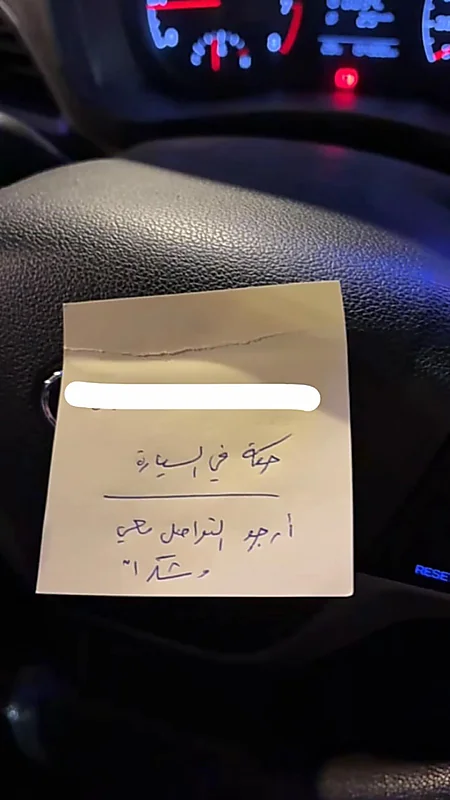 حكة في السيارة
أرجو التواصل معي
وشكراً
RESE